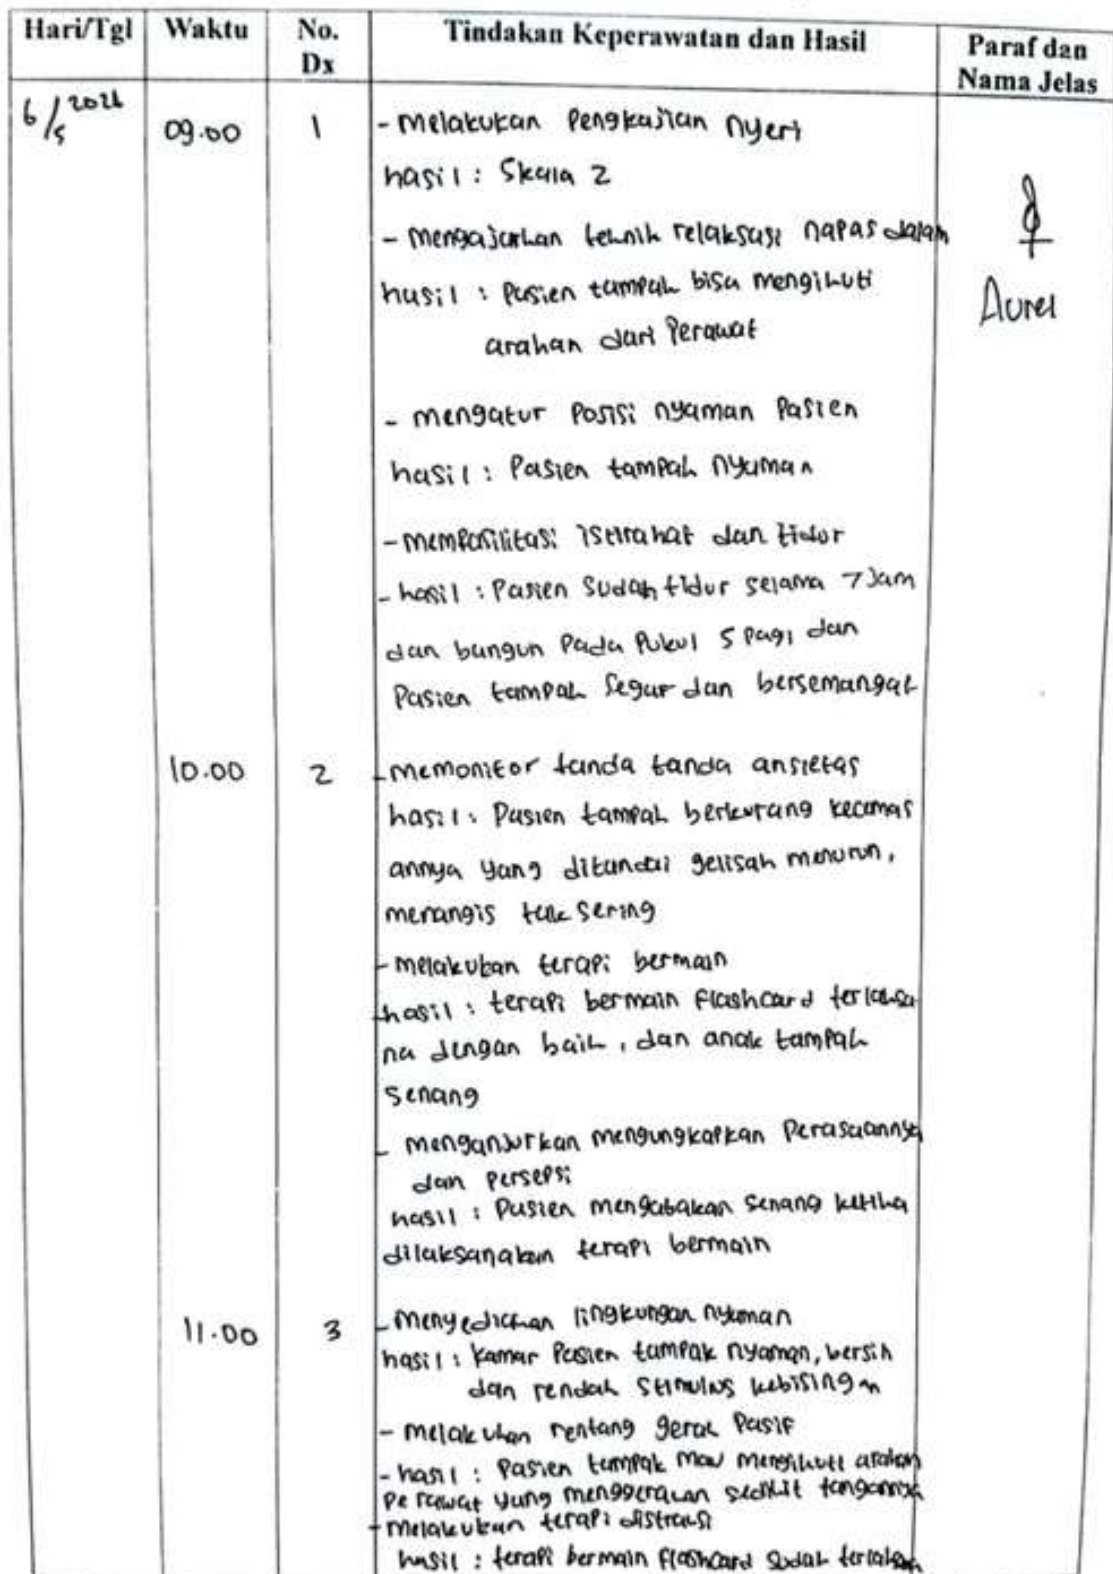 Hari/Tgl Waktu No. Dx Tindakan Keperawatan dan Hasil Paraf dan Nama Jelas
6/5 2026 09.00 1 - Melakukan Pengkajian nyeri
hasil : Skala 2
- mengajarkan teknik relaksasi napas dalam
hasil : Pasien tampak bisa mengikuti
arahan dari Perawat
Aurel
- mengatur Posisi nyaman Pasien
hasil : Pasien tampak nyaman
- memfasilitasi istirahat dan tidur
- hasil : Pasien Sudah tidur selama 7 Jam
dan bangun Pada Pukul 5 Pagi dan
Pasien tampak Segar dan bersemangat
10.00 2 - memonitor tanda tanda ansietas
hasil : Pasien tampak berkurang kecemas
annya yang ditandai gelisah menurun,
menangis tak Sering
- melakukan terapi bermain
- hasil : terapi bermain flashcard terlaksa
na dengan baik, dan anak tampak
Senang
- menganjurkan mengungkapkan Perasaannya
dan persepsi
hasil : Pasien mengatakan Senang ketika
dilaksanakan terapi bermain
11.00 3 - Menyediakan lingkungan nyaman
hasil : Kamar Pasien tampak nyaman, bersih
dan rendah Stimulus kebisingan
- Melakukan rentang gerak Pasif
- hasil : Pasien tampak mau mengikuti arahan
Perawat yang menggerakan sedikit tangannya
- Melakukan terapi distraksi
hasil : terapi bermain flashcard Sudah